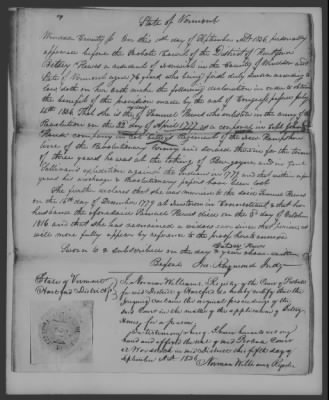 State of Vermont
Windsor County ss On this 1st day of September AD 1836 personally
appeared before the Probate Court of the District of Hartford
Betsey Hews a resident of Norwich in the County of Windsor and
State of Vermont aged 76 years who being first duly sworn according to
law doth on her oath make the following declaration in order to obtain
the benefit of the provision made by the act of Congress passed July
4th 1836 That she is the of Samuel Hews who enlisted in the army of the
Revolution on the 22 day of April 1777 as a corporal in Capt John
company Regiment of the New Hampshire
line of the Revolutionary army and served therein for the term
of three years he was at the taking of Burgoyne and in Genl
Sullivans expedition against the Indians in 1779 and that within a few
years his discharge & Revolutionary papers have been lost
She further declares that she was married to the said Samuel Hews
on the 16th day of December 1779 at in Connecticut & that her
husband the aforesaid Samuel Hews died on the 5th day of October
1816 and that she has remained a widow ever since that period as
will more fully appear by reference to the proof hereto annexed
Betsey Hews
Sworn to & subscribed on the day & year above written
Before Judge
State of Vermont
Hartford District ss
I Norman Williams, Register of the Court of Probate
for said District of Hartford do hereby certify that the
foregoing contains the original proceedings of the
said Court in the matter of the application of Betsey
Hews, for a pension,
In testimony whereof I have hereunto set my
hand and affixed the seal of said Probate Court
at Woodstock in said District this fifth day of
September AD. 1836
Norman Williams Regstr